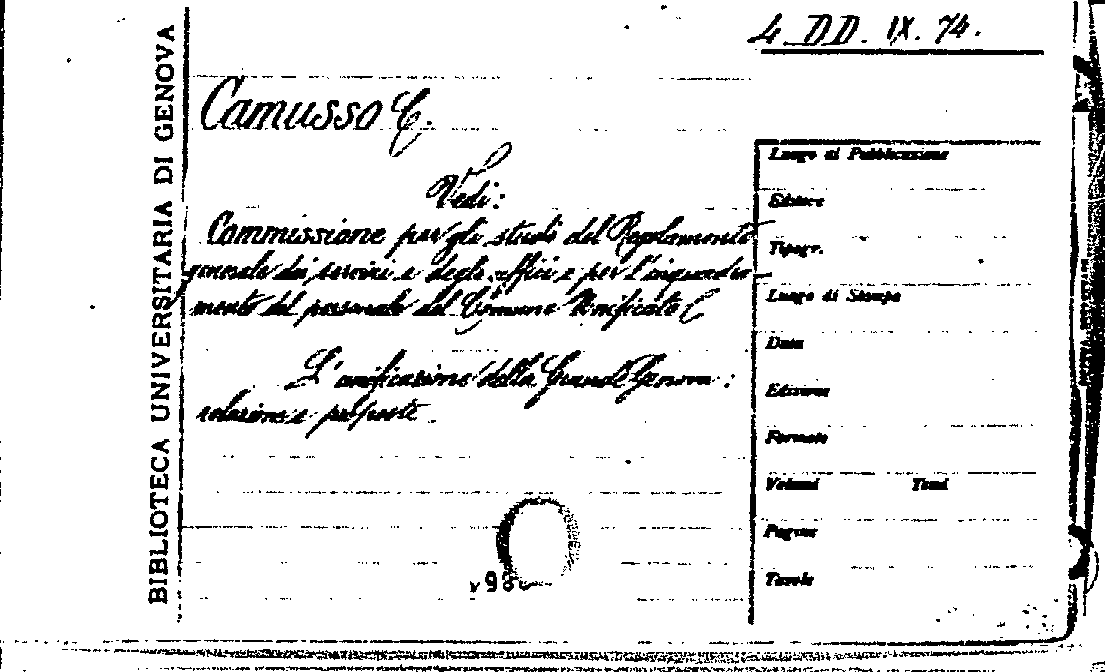 4. DD. IX. 74.
BIBLIOTECA UNIVERSITARIA DI GENOVA
Camusso C.
Vedi:
Commissione per gli studi del Regolamento
generale dei servizi e degli uffici e per l'inquadra-
mento del personale del Comune Unificato
L'unificazione della Grande Genova:
relazione e proposte.
Luogo di Pubblicazione
Editore
Tipogr.
Luogo di Stampa
Data
Edizione
Formato
Volumi Tomi
Pagine
Tavole